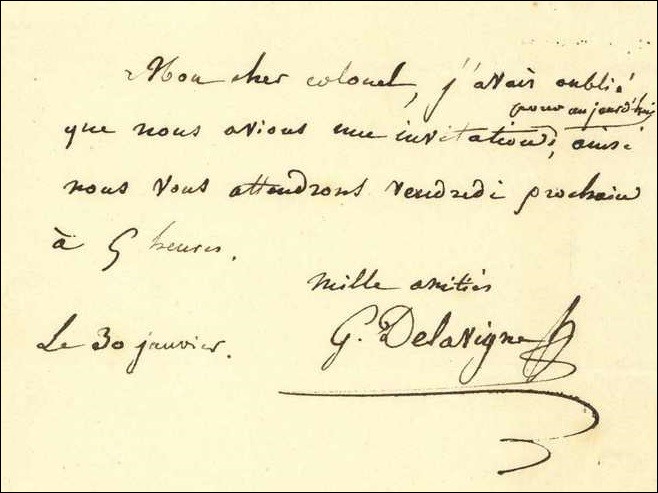 Mon cher colonel, j'avais oublié
pour aujourd'hui
que nous avions une invitation, ainsi
nous vous attendrons vendredi prochain
à 5 heures.
mille amitiés
G. Delavigne
Le 30 janvier.